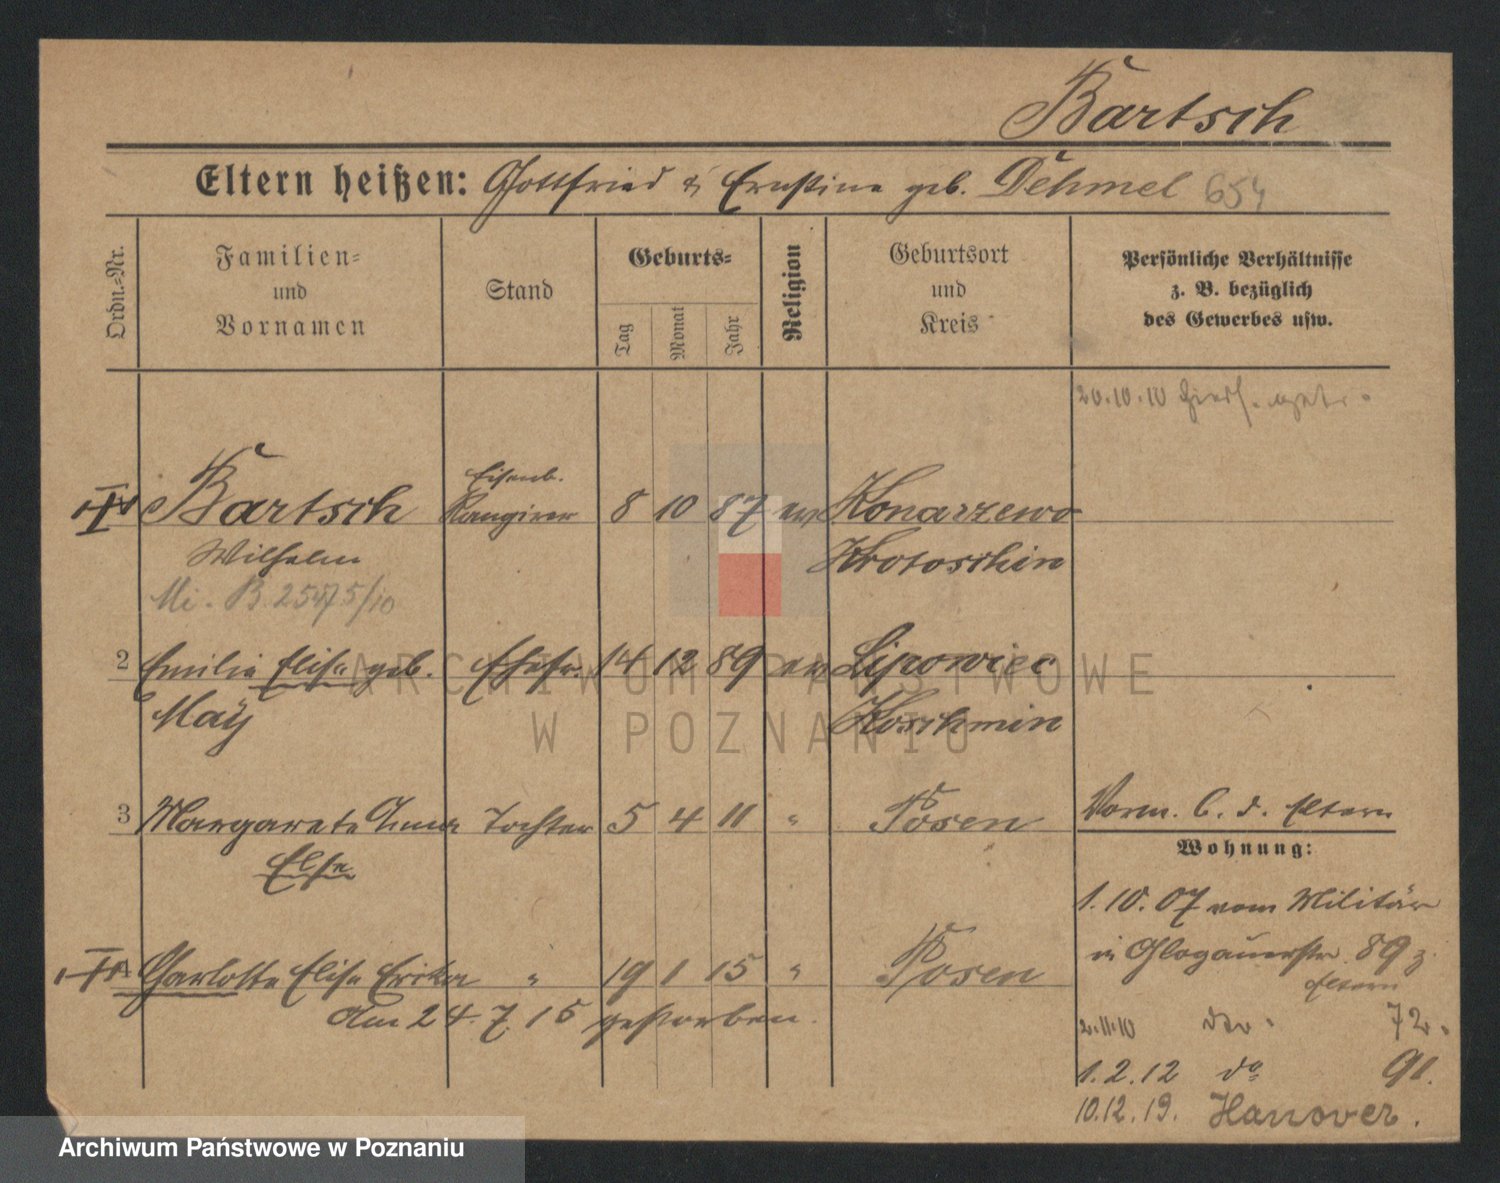 Bartsch
Eltern heißen: Gottfried & Ernstine geb. Dehmel 654
Ordn.-Nr.
Familien-
und
Vornamen
Stand
Geburts-
Tag
Monat
Jahr
Religion
Geburtsort
und
Kreis
Persönliche Verhältnisse
z. B. bezüglich
des Gewerbes usw.
20.10.10
Eisenb.
Bartsch Rangirer 8 10 87 ev Konarzewo
Wilhelm Krotoschin
Mi. B. 2547 5/10
2 Emilie Elise geb. Ehefr. 14 12 89 ev Lipowiec
May Koschmin
3 Margarete Anna Tochter 5 4 11 " Posen
Else
Vorm. C. d. Eltern
Wohnung:
1.10.07 vom Militär
in Glogauerstr. 89 z.
Eltern
4 Charlotte Elise Erika " 19 1 15 " Posen
Am 24.7.15 gestorben.
2.11.10 72.
1.2.12 do 91.
10.12.19. Hanover.
ARCHIWUM PAŃSTWOWE
W POZNANIU
Archiwum Państwowe w Poznaniu